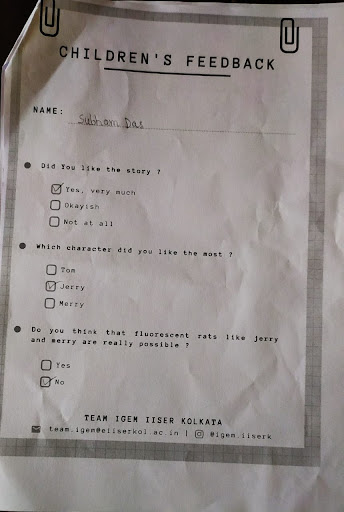 CHILDREN'S FEEDBACK
NAME: Subham Das
Did You like the story ?
Yes, very much
Okayish
Not at all
Which character did you like the most ?
Tom
Jerry
Merry
Do you think that fluorescent rats like jerry
and merry are really possible ?
Yes
No
TEAM IGEM IISER KOLKATA
team.igem@eiiserkol.ac.in | @igem_iiserk